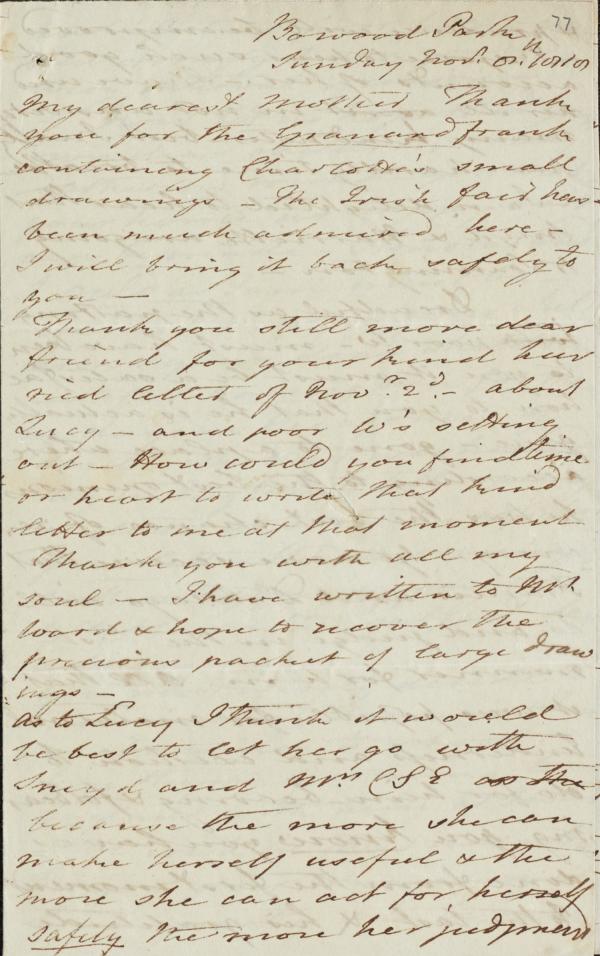 77
Bowood Park
Sunday Nov.r 8.th 1818
My dearest Mother Thank
you for the Granard frank
containing Charlotte's small
drawings – The Irish fair has
been much admired here –
I will bring it back safely to
you –
Thank you still more dear
friend for your kind hur
ried letter of Nov.r 2.d – about
Lucy – and poor W's setting
out – How could you find time
or heart to write that kind
letter to me at that moment
Thank you with all my
soul – I have written to Mr
Ward & hope to recover the
precious packet of large draw
ings –
As to Lucy I think it would
be best to let her go with
Sneyd and Mrs C S E as the
because the more she can
make herself useful & the
more she can act for herself
safely the more her judgment